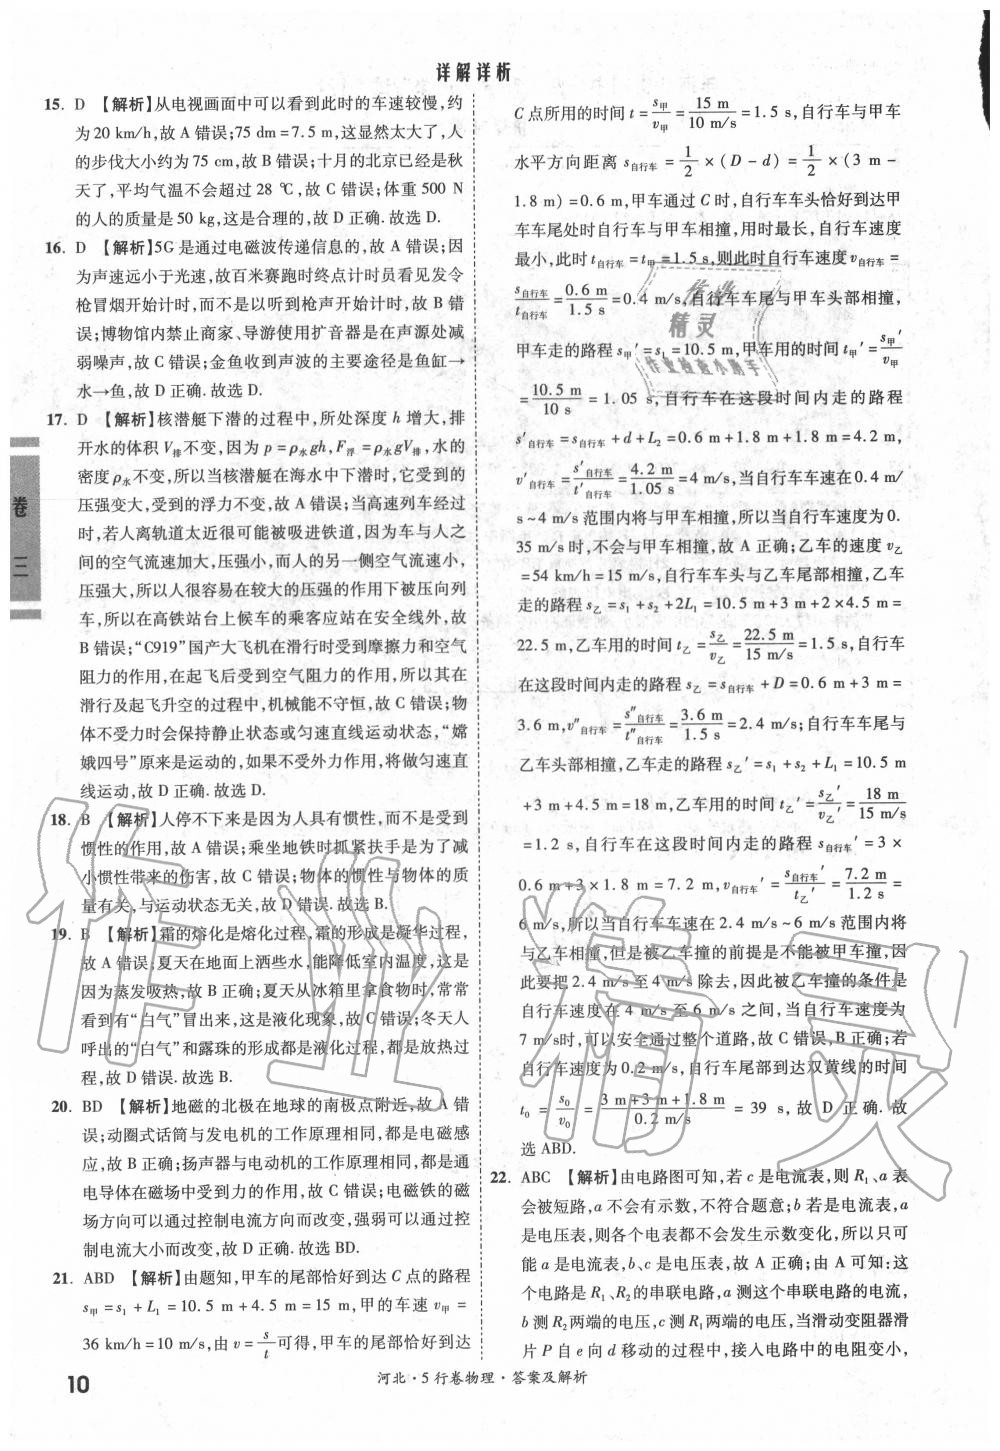 详解详析
15. D 【解析】从电视画面中可以看到此时的车速较慢,约
为20 km/h,故A错误;75 dm=7.5 m,这显然太大了,人
的步伐大小约为75 cm,故B错误;十月的北京已经是秋
天了,平均气温不会超过28 ℃,故C错误;体重500 N
的人的质量是50 kg,这是合理的,故D正确.故选D.
16. D 【解析】5G是通过电磁波传递信息的,故A错误;因
为声速远小于光速,故百米赛跑时终点计时员看见发令
枪冒烟开始计时,而不是以听到枪声开始计时,故B错
误;博物馆内禁止商家、导游使用扩音器是在声源处减
弱噪声,故C错误;金鱼收到声波的主要途径是鱼缸→
水→鱼,故D正确.故选D.
17. D 【解析】核潜艇下潜的过程中,所处深度h增大,排
开水的体积V排不变,因为p=ρ水gh,F浮=ρ水gV排,水的
密度ρ水不变,所以当核潜艇在海水中下潜时,它受到的
压强变大,受到的浮力不变,故A错误;当高速列车经过
时,若人离轨道太近很可能被吸进铁道,因为车与人之
间的空气流速加大,压强小,而人的另一侧空气流速小,
压强大,所以人很容易在较大的压强的作用下被压向列
车,所以在高铁站台上候车的乘客应站在安全线外,故
B错误;“C919”国产大飞机在滑行时受到摩擦力和空气
阻力的作用,在起飞后受到空气阻力的作用,所以其在
滑行及起飞升空的过程中,机械能不守恒,故C错误;
不受力时会保持静止状态或匀速直线运动状态,“嫦
娥四号”原来是运动的,如果不受外力作用,将做匀速直
线运动,故D正确.故选D.
18. B 【解析】人停不下来是因为人具有惯性,而不是受到
惯性的作用,故A错误;乘坐地铁时抓紧扶手是为了减
小惯性带来的伤害,故B正确;物体的惯性与物体的质
量有关,与运动状态无关,故C、D错误.故选B.
19. B 【解析】霜的熔化是熔化过程,霜的形成是凝华过程,
故A错误;夏天在地面上洒些水,能降低室内温度,这是
因为蒸发吸热,故B正确;夏天从冰箱里拿食物时,常常
看到有“白气”冒出来,这是液化现象,故C错误;冬天人
呼出的“白气”和露珠的形成都是液化过程,都是放热过
程,故D错误.故选B.
20. BD 【解析】地磁的北极在地球的南极点附近,故A错
误;动圈式话筒与发电机的工作原理相同,都是电磁感
应,故B正确;扬声器与电动机的工作原理相同,都是通
电导体在磁场中受到力的作用,故C错误;电磁铁的磁
场方向可以通过控制电流方向而改变,强弱可以通过控
制电流大小而改变,故D正确.故选BD.
21. ABD 【解析】由题知,甲车的尾部恰好到达C点的路程
s甲=s1+L1=10.5 m+4.5 m=15 m,甲的车速v甲=
36 km/h=10 m/s,由v=s/t可得,甲车的尾部恰好到达
C点所用的时间t=s甲/v甲=15 m/10 m/s=1.5 s,自行车与甲车
水平方向距离s自行车=1/2×(D-d)=1/2×(3 m-
1.8 m)=0.6 m,甲车通过C时,自行车车头恰好到达甲
车车尾处时自行车与甲车相撞,用时最长,自行车速度
最小,此时t自行车=t甲=1.5 s,则此时自行车速度v自行车=
s自行车/t自行车=0.6 m/1.5 s=0.4 m/s,自行车车尾与甲车头部相撞,
甲车走的路程s甲′=s1=10.5 m,甲车用的时间t甲′=s甲′/v甲
=10.5 m/10 s=1.05 s,自行车在这段时间内走的路程
s′自行车=s自行车+d+L2=0.6 m+1.8 m+1.8 m=4.2 m,
v′自行车=s′自行车/t′自行车=4.2 m/1.05 s=4 m/s,当自行车速度在0.4 m/
s~4 m/s范围内将与甲车相撞,所以当自行车速度为0.
35 m/s时,不会与甲车相撞,故A正确;乙车的速度v乙
=54 km/h=15 m/s,自行车车头与乙车尾部相撞,乙车
走的路程s乙=s1+s2+2L1=10.5 m+3 m+2×4.5 m=
22.5 m,乙车用的时间t乙=s乙/v乙=22.5 m/15 m/s=1.5 s,自行车
在这段时间内走的路程s乙=s自行车+D=0.6 m+3 m=
3.6 m,v″自行车=s″自行车/t″自行车=3.6 m/1.5 s=2.4 m/s;自行车车尾与
乙车头部相撞,乙车走的路程s乙′=s1+s2+L1=10.5 m
+3 m+4.5 m=18 m,乙车用的时间t乙′=s乙′/v乙′=18 m/15 m/s
=1.2 s,自行车在这段时间内走的路程s自行车′=3×
0.6 m+3×1.8 m=7.2 m,v自行车′=s自行车′/t乙′=7.2 m/1.2 s=
6 m/s,所以当自行车车速在2.4 m/s~6 m/s范围内将
与乙车相撞,但是被乙车撞的前提是不能被甲车撞,因
此要把2.4 m/s至4 m/s除去,因此被乙车撞的条件是
自行车速度在4 m/s至6 m/s之间,当自行车速度为
7 m/s时,可以安全通过整个道路,故C错误,B正确;若
自行车速度为0.2 m/s,自行车尾部到达双黄线的时间
t0=s0/v0=3 m+3 m+1.8 m/0.2 m/s=39 s,故D正确.故
选ABD.
22. ABC 【解析】由电路图可知,若c是电流表,则R1、a表
会被短路,a不会有示数,不符合题意;b若是电流表,a
是电压表,则各个电表都不会发生示数变化,所以只可
能a是电流表,b、c是电压表,故A正确;由A可知:这
个电路是R1、R2的串联电路,a测这个串联电路的电流,
b测R2两端的电压,c测R1两端的电压,当滑动变阻器滑
片P自e向d移动的过程中,接入电路中的电阻变小,
卷三
10
河北·5行卷物理·答案及解析
作业
精灵
作业检查小助手
作业精灵